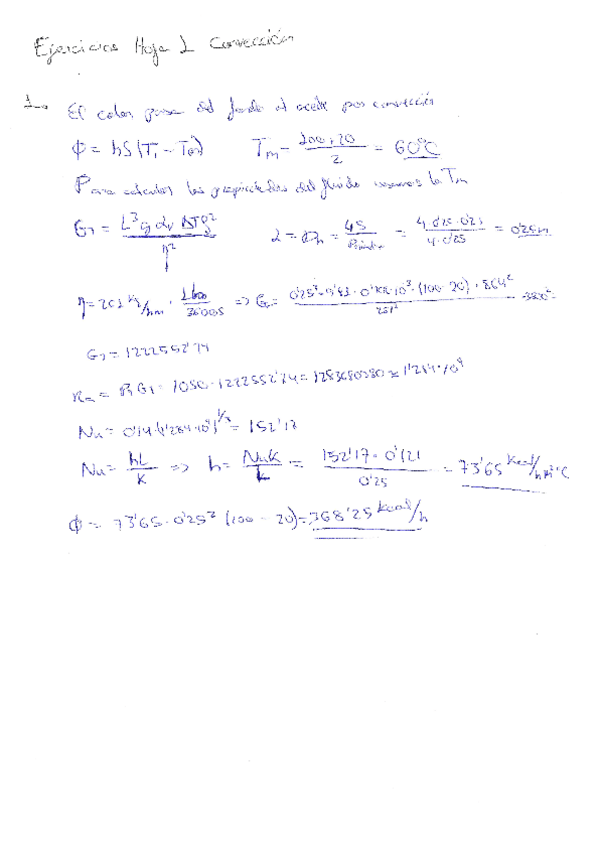 Ejercicios Hoja 2 Convección
1.- El calor pasa del fondo al aceite por convección
ϕ = hS(T₁ - T∞) Tm = (100+20)/2 = 60ºC
Para calcular las propiedades del fluido usamos la Tm
Gr = L³ g αv ΔT ρ²/η² L = Dh = 4S/Perímetro = 4·0'25·0'25/4·0'25 = 0'25m
Gr = 1222552'74
Ra = Pr Gr = 1050·1222552'74 = 1283680380 ≈ 1'284·10⁹
Nu = 0'14·(1'284·10⁹)^1/3 = 152'17
Nu = hL/K => h = NuK/L = 152'17·0'121/0'25 = 73'65 Kcal/hm²ºC
ϕ = 73'65·0'25²(100 - 20) = 368'25 Kcal/h